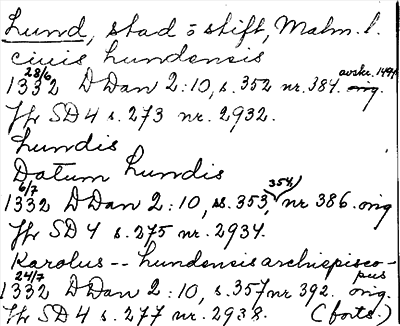 Lund, stad o stift, Malm. l.
civis lundensis
28/6 avskr. 1494
1332 DDan 2:10, s. 352 nr. 384. orig.
Jfr SD 4 s. 273 nr. 2932.
Lundis
Datum Lundis
6/7 354,
1332 DDan 2:10, ss. 353, nr 386. orig
Jfr SD 4 s. 275 nr. 2934.
Karolus -- lundensis archiepisco-
24/7 pus
1332 DDan 2:10, s. 357 nr 392. orig.
Jfr SD 4 s. 277 nr. 2938. (forts.)